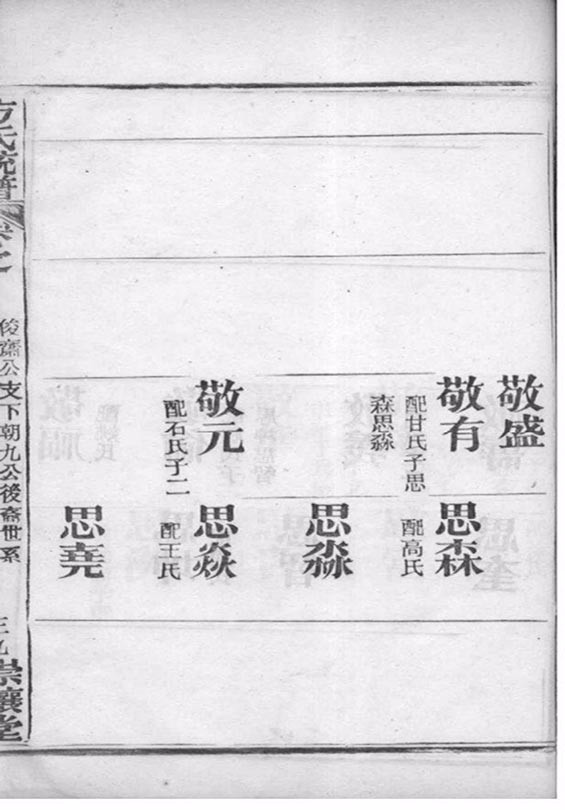 敬盛
敬有
配甘氏子思
森思淼
敬元
配石氏子二
思森
配高氏
思淼
思焱
配王氏
思垚
方氏統譜
俊齋公支下朝九公後裔世系
堂